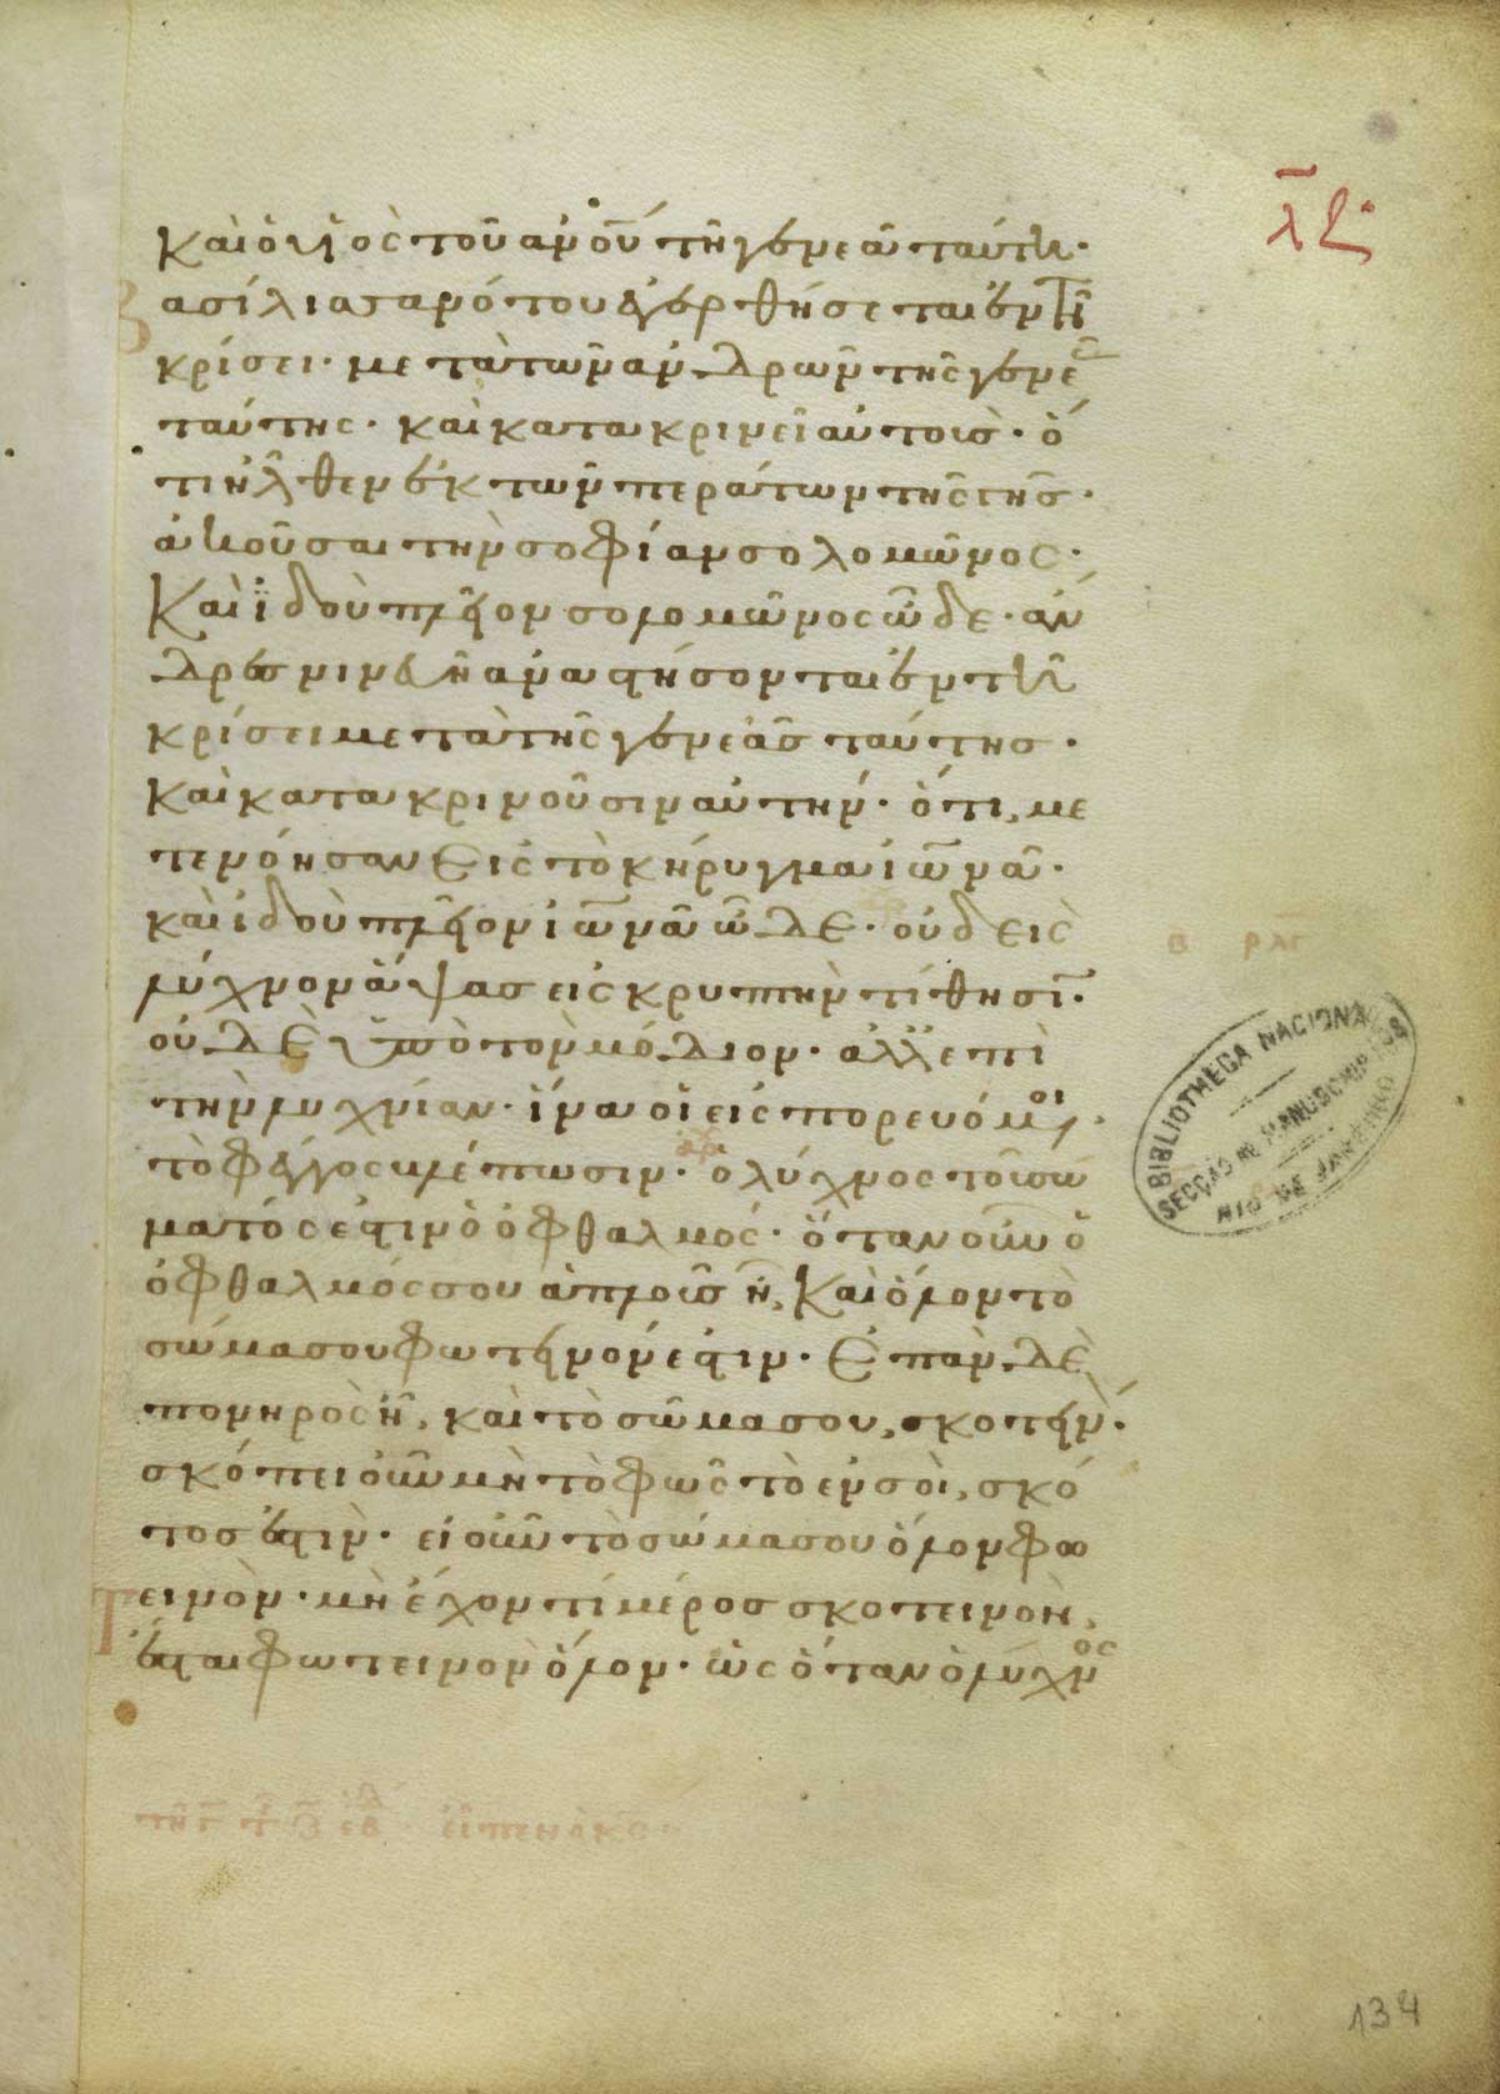 λζ
καὶ ὁ υἱὸς τοῦ ἀνοῦ τῆ γενεᾶ ταύτη·
Βασίλισσα νότου ἐγερθήσεται ἐν τῆ
κρίσει· μετὰ τῶν ἀνδρῶν τῆς γενεᾶ
ταύτης· καὶ κατακρινεῖ αὐτοὺς· ὅ
τι ἦλθεν ἐκ τῶν περάτων τῆς γῆς·
ἀκοῦσαι τὴν σοφίαν σολομῶνος·
Καὶ ἰδοὺ πλεῖον σολομῶνος ὧδε· ἄν
δρες νινευῆ ἀναστήσονται ἐν τῆ
κρίσει μετὰ τῆς γενεᾶς ταύτης·
καὶ κατακρινοῦσιν αὐτήν· ὅτι, με
τενόησαν εἰς τὸ κήρυγμα ἰωνᾶ·
καὶ ἰδοὺ πλεῖον ἰωνᾶ ὧδε· οὐδεὶς
λύχνον ἅψας εἰς κρυπτὴν τίθησι·
οὐδὲ ὑπὸ τὸν μόδιον· ἀλλ' ἐπὶ
τὴν λυχνίαν· ἵνα οἱ εἰσπορευόμενοι
τὸ φέγγος βλέπωσιν· ὁ λύχνος τοῦ σώ
ματός ἐστιν ὁ ὀφθαλμός· ὅταν οὖν ὁ
ὀφθαλμός σου ἁπλοῦς ἦ, Καὶ ὅλον τὸ
σώμα σου φωτεινόν ἐστιν· Ἐπὰν δὲ
πονηρὸς ἦ, καὶ τὸ σῶμα σου, σκοτεινὸν·
σκόπει οὖν μὴ τὸ φῶς τὸ ἐν σοὶ, σκό
τος ἐστὶν· εἰ οὖν τὸ σώμα σου ὅλον φω
τεινὸν· μὴ ἔχον τί μέρος σκοτεινὸν,
ἔσται φωτεινὸν ὅλον· ὡς ὅταν ὁ λύχνος
BIBLIOTHECA NACIONAL
SECÇÃO DE MANUSCRIPTOS
RIO DE JANEIRO
134